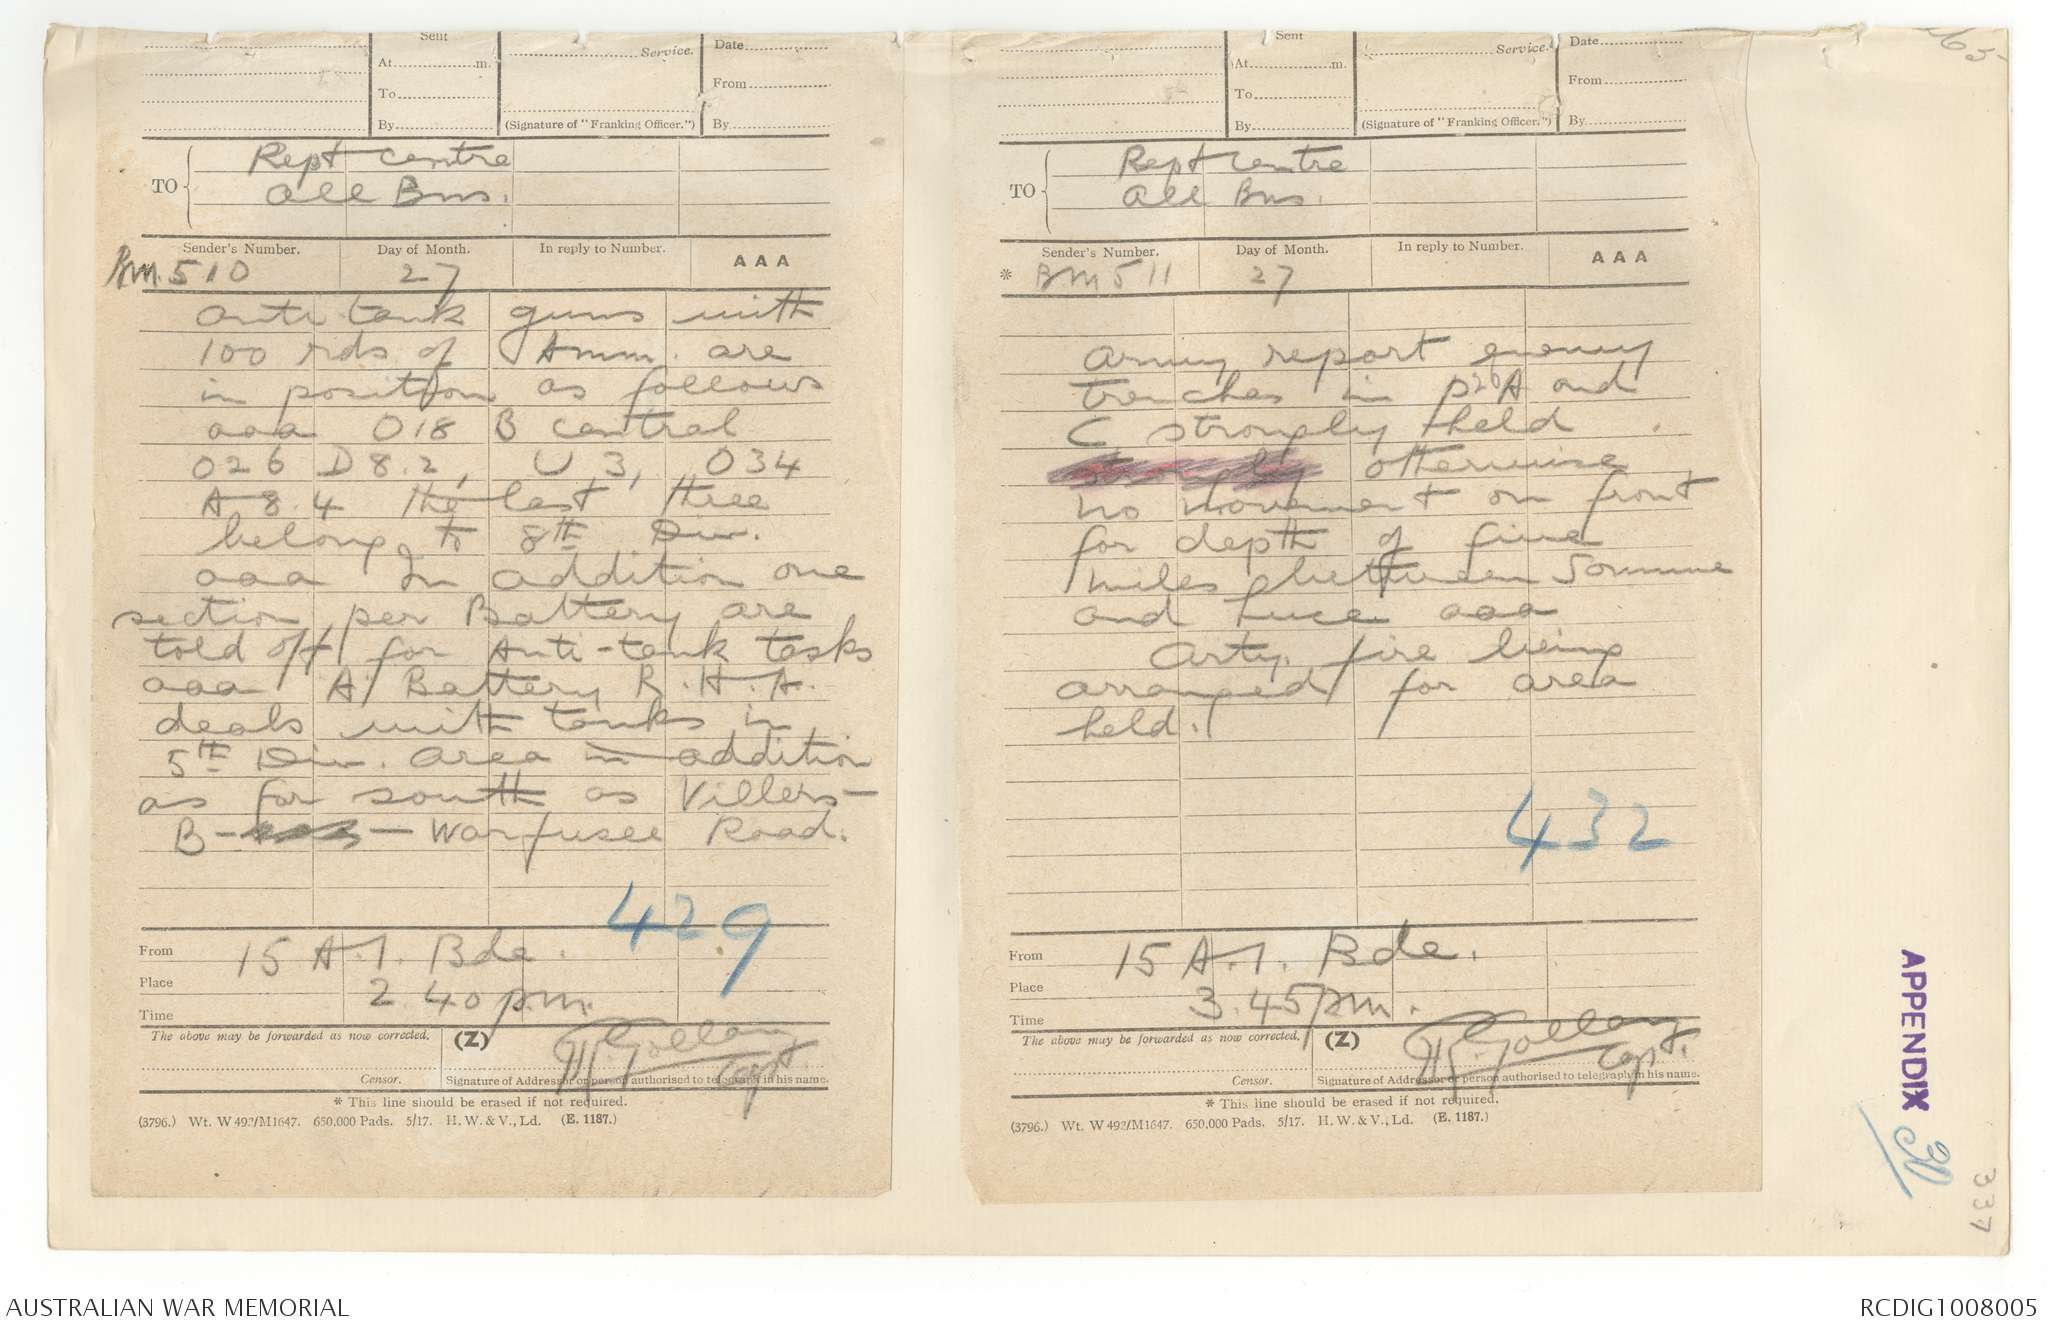 Sent
Service.
Date
At m.
To
From
By
(Signature of "Franking Officer.")
By
TO
Rept centre
All Bns.
Sender's Number.
Day of Month.
In reply to Number.
AAA
BM. 510
27
Anti-tank guns with
100 rds of Amm. are
in position as follows
aaa O18 B central
O26 D8.2, U3, O34
A 8.4 the last three
belong to 8th Div.
aaa In addition one
section per Battery are
told off for Anti-tank tasks
aaa A Battery R.H.A.
deals with tanks in
5th Div. area in addition
as far south as Villers-
B - Warfusee Road.
429
From
15 A.I. Bde.
Place
Time
2.40 pm.
The above may be forwarded as now corrected.
(Z)
Capt
Censor.
Signature of Addressor or person authorised to telegraph in his name.
* This line should be erased if not required.
(3796.) Wt. W 492/M1647. 650,000 Pads. 5/17. H. W. & V., Ld. (E. 1187.)
Sent
Service.
Date
At m.
To
From
By
(Signature of "Franking Officer.")
By
TO
Rept centre
All Bns.
Sender's Number.
Day of Month.
In reply to Number.
AAA
* BM 511
27
Army report enemy
trenches in P20A and
C strongly held
otherwise
no movement on front
for depth of five
miles between Somme
and Luce aaa
Arty. fire being
arranged for area
held.
432
From
15 A.I. Bde.
Place
Time
3.45 pm.
The above may be forwarded as now corrected.
(Z)
Capt.
Censor.
Signature of Addressor or person authorised to telegraph in his name.
* This line should be erased if not required.
(3796.) Wt. W 492/M1647. 650,000 Pads. 5/17. H. W. & V., Ld. (E. 1187.)
APPENDIX
337
AUSTRALIAN WAR MEMORIAL
RCDIG1008005